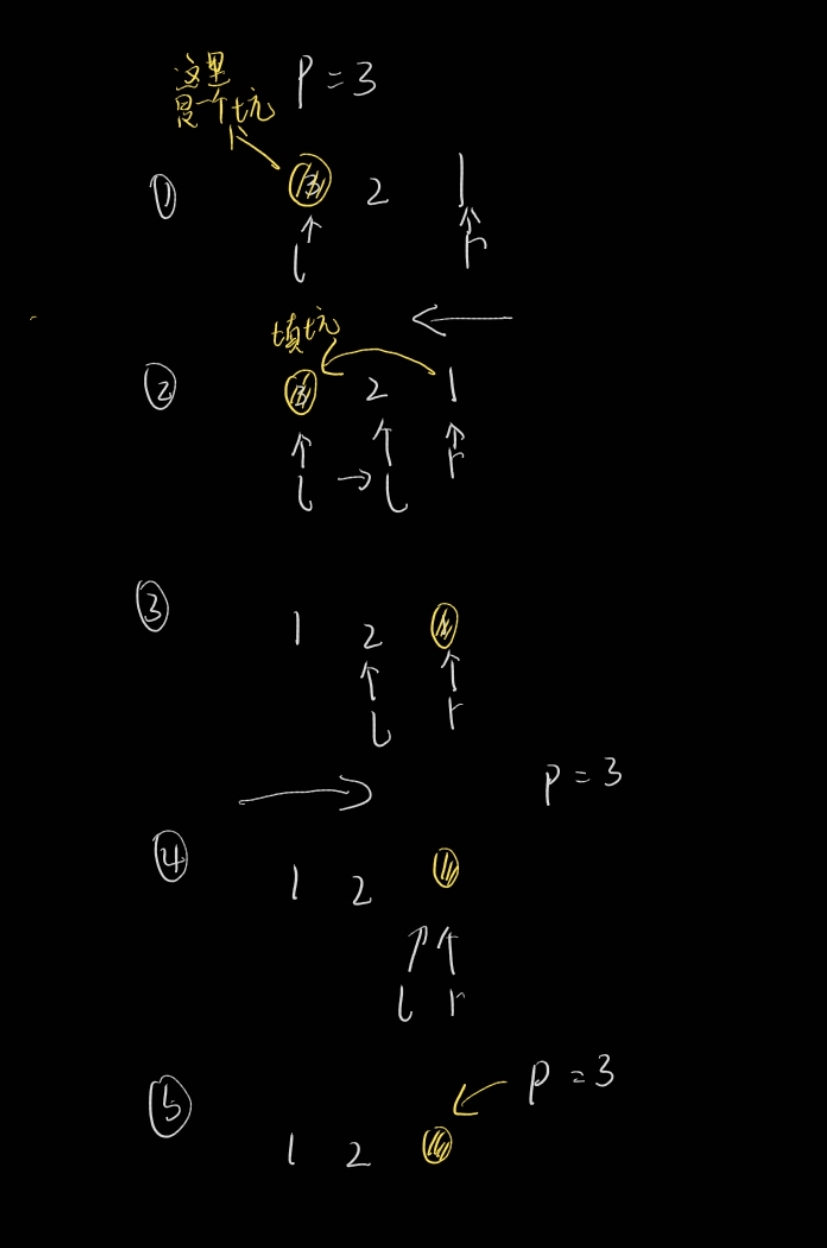 这里
是一个坑
P = 3
① 2 1
l r
填坑
② 2 1
l → l r
③ 1 2
l r
p = 3
④ 1 2
l r
p = 3
⑤ 1 2